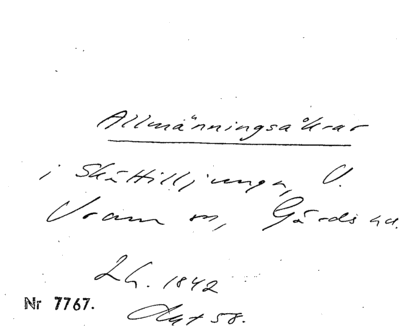 Allmänningsåkrar
i Skättilljunga, V.
Vram m, Gärds hd.
Lh. 1842
Nr 7767.
Akt 58.